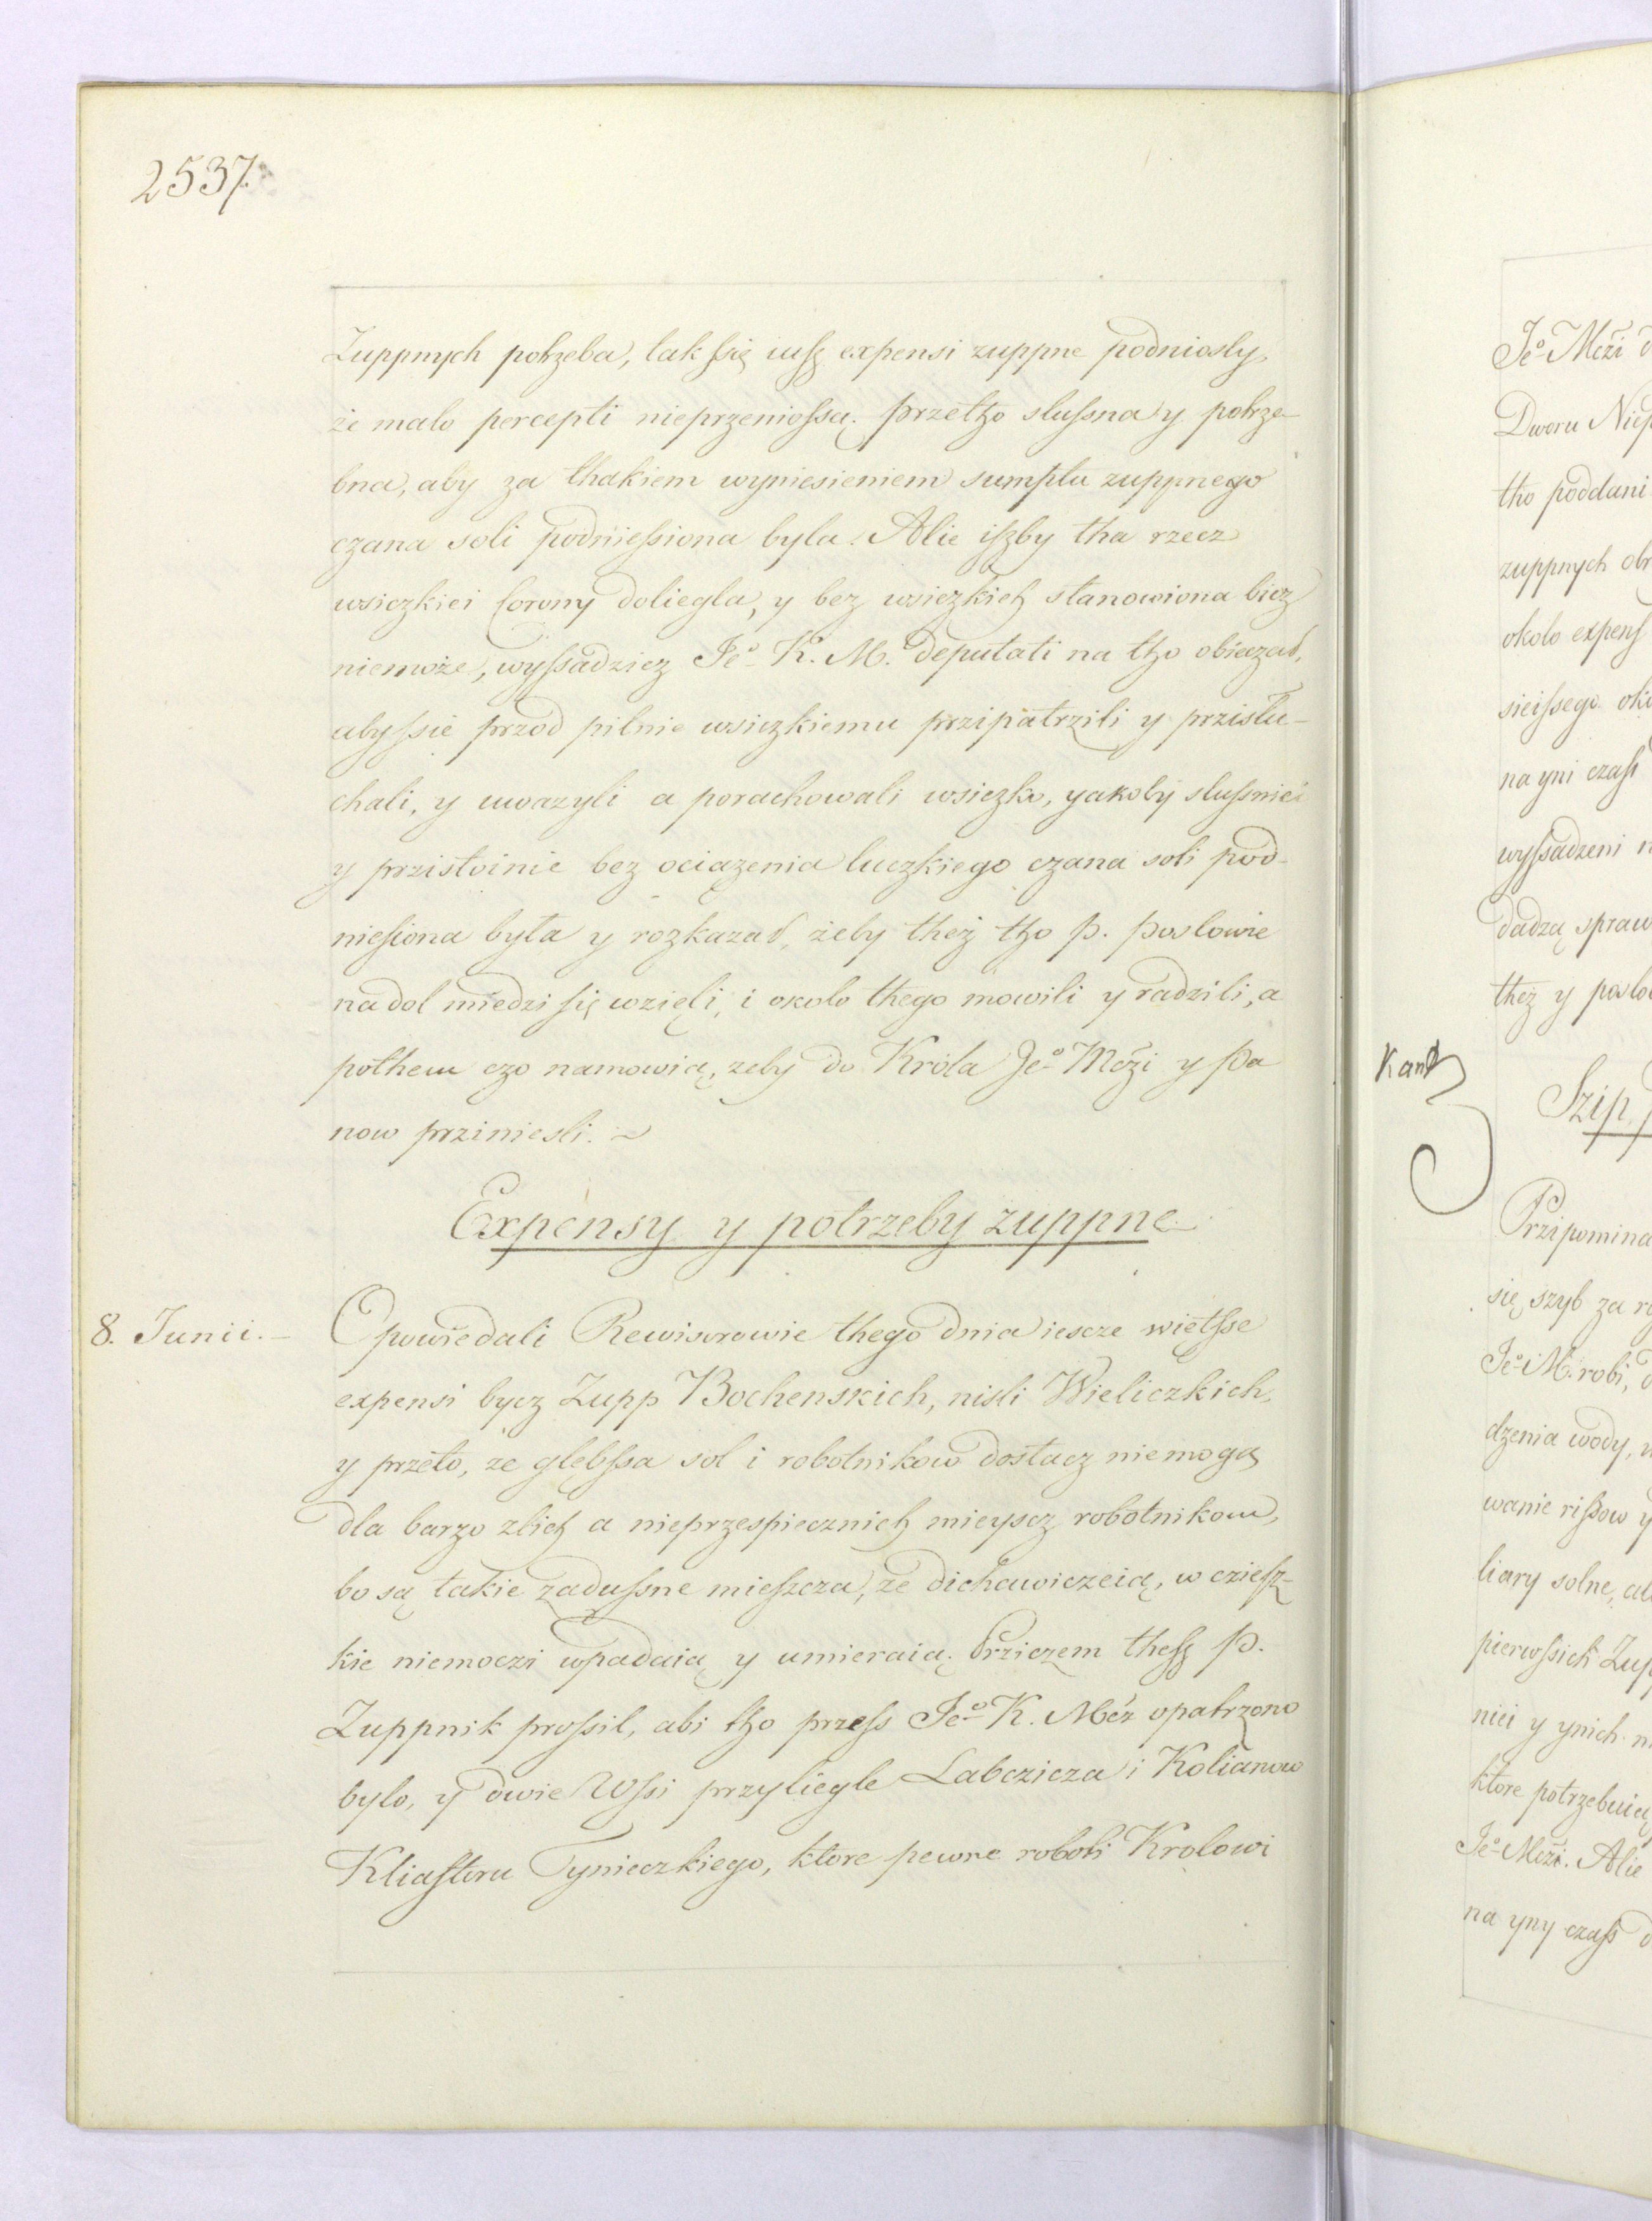 2537.
Zuppnych potrzeba, tak ssię iusz expensi zuppne podniosly,
że malo percepti nieprzeniossą. przetho slussna y potrze-
bna, aby za thakiem wyniesieniem sumptu zuppnego
czana soli podniessiona byla. Alie iszby tha rzecz
wsiczkiei Corony doliegla, y bez wsiczkich stanowiona bicz
niemoże, wyssadzicz Jeº K. M. deputati na tho obiazał,
abyssie przod pilnie wsiczkiemu przipatrzili y przislu-
chali, y uwazyli a porachowali wsiczko, yakoby slussniei
y przistoinie bez ociązenia luczkiego czana soli pod-
niesiona była y rozkazał, żeby też tho p. poslowie
na dol miedzi się wzięli, i okolo thego mowili y radzili, a
pothem czo namowią, zeby do Króla Jeº Mczi y Pa
now przinieśli.
Expensy y potrzeby zuppne
8. Junii.-
Opowiedali Rewisorowie thego dnia iescze więtsse
expensi bycz Zupp Bochenskich, nisli Wieliczkich,
y przeto, ze glebssa sol i robotnikow dostacz niemogą
dla barzo zlich a nieprzespiecznich mieyscz robotnikom,
bo są takie zadussne mieszcza, ze dichawiczeią, w cziesz-
kie niemoczi wpadaią y umieraią. Prziczem thesz p.
Zuppnik prossil, abi tho przess Jeº K. Mcź opatrzono
bylo, y dwie Wssi przyliegle Labczicza i Kolianow
Kliasztoru Tynieczkiego, ktore pewne roboti Krolowi
Jeº Mczi
Dworu
tho poddani
zuppnych
okolo expens
sieissego
na yni czass
wyssadzeni
dadzą spraw
też y poslo
Kant
Szip
Przipomina
się szyb za
Jeº M. robi,
dzenia wody,
wanie rissow y
liary solne,
pierwssich Zup
niei y ynich
ktore potrzebuią
Jeº Mczi. Alie
na yny czass